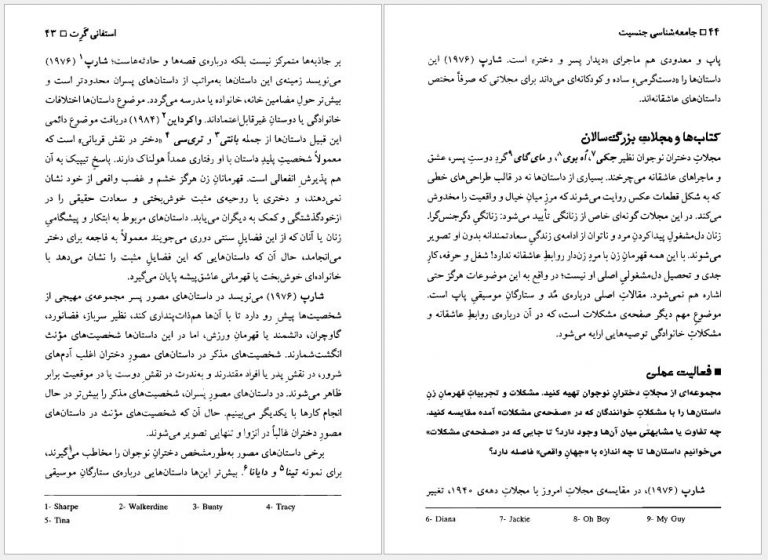 استفانی گَرِت □ ۴۳
بر جاذبه‌ها متمرکز نیست بلکه درباره‌ی قصه‌ها و حادثه‌هاست؛ شارپ۱ (۱۹۷۶)
می‌نویسد زمینه‌ی این داستان‌ها به‌مراتب از داستان‌های پسران محدودتر است و
بیش‌تر حولِ مضامین خانه، خانواده یا مدرسه می‌گردد. موضوع داستان‌ها اختلافات
خانوادگی یا دوستانِ غیرقابل‌اعتماداند. واکرداین۲ (۱۹۸۴) دریافت موضوع دائمی
این قبیل داستان‌ها از جمله بانتی۳ و تریسی۴ «دختر در نقش قربانی» است که
معمولاً شخصیتِ پلیدِ داستان با او رفتاری عمداً هولناک دارند. پاسخِ تیپیک به آن
هم پذیرشِ انفعالی است. قهرمانانِ زن هرگز خشم و غضب واقعی از خود نشان
نمی‌دهند، و دختری با روحیه‌ی مثبت خوش‌بختی و سعادت حقیقی را در
ازخودگذشتگی و کمک به دیگران می‌یابد. داستان‌های مربوط به ابتکار و پیشگامیِ
زنان یا آنان که از این فضایلِ سنتی دوری می‌جویند معمولاً به فاجعه برای دختر
می‌انجامد، حال آن که داستان‌هایی که این فضایلِ مثبت را نشان می‌دهد با
خانواده‌ای خوش‌بخت یا قهرمانی عاشق‌پیشه پایان می‌گیرد.
شارپ (۱۹۷۶) می‌نویسد در داستان‌های مصور پسر مجموعه‌ی مهیجی از
شخصیت‌ها پیشِ رو دارد تا با آن‌ها هم‌ذات‌پنداری کند، نظیر سرباز، فضانورد،
گاوچران، دانشمند یا قهرمانِ ورزش، اما در این داستان‌ها شخصیت‌های مؤنث
انگشت‌شمارند. شخصیت‌های مذکر در داستان‌های مصورِ دختران اغلب آدم‌های
شرور، در نقشِ پدر یا افراد مقتدرند و به‌ندرت در نقشِ دوست یا در موقعیت برابر
ظاهر می‌شوند. در داستان‌های مصورِ پسران، شخصیت‌های مذکر را بیش‌تر در حال
انجام کارها با یکدیگر می‌بینیم. حال آن که شخصیت‌های مؤنث در داستان‌های
مصورِ دختران غالباً در انزوا و تنهایی تصویر می‌شوند.
برخی داستان‌های مصور به‌طورمشخص دخترانِ نوجوان را مخاطب می‌گیرند،
برای نمونه تینا۵ و دایانا۶. بیش‌تر این‌ها داستان‌هایی درباره‌ی ستارگانِ موسیقیِ
1- Sharpe 2- Walkerdine 3- Bunty 4- Tracy
5- Tina
۴۴ □ جامعه‌شناسی جنسیت
پاپ و معدودی هم ماجرای «دیدار پسر و دختر» است. شارپ (۱۹۷۶) این
داستان‌ها را «دست‌گرمیِ» ساده و کودکانه‌ای می‌داند برای مجلاتی که صرفاً مختص
داستان‌های عاشقانه‌اند.
کتاب‌ها و مجلاتِ بزرگ‌سالان
مجلاتِ دختران نوجوان نظیر جکی۷، اُه بوی۸، و مای گای۹ گردِ دوستِ پسر، عشق
و ماجراهای عاشقانه می‌چرخند. بسیاری از داستان‌ها نه در قالب طراحی‌های خطی
که به شکل قطعات عکس روایت می‌شوند که مرزِ میانِ خیال و واقعیت را مخدوش
می‌کند. در این مجلات گونه‌ای خاص از زنانگی تأیید می‌شود: زنانگیِ دگرجنس‌گرا.
زنان دل‌مشغولِ پیداکردنِ مرد و ناتوان از ادامه‌ی زندگیِ سعادتمندانه بدون او تصویر
می‌شوند. با این همه قهرمانِ زن با مردِ زن‌دار روابطِ عاشقانه ندارد! شغل و حرفه، کارِ
جدی و تحصیل دل‌مشغولیِ اصلی او نیست؛ در واقع به این موضوعات هرگز حتی
اشاره هم نمی‌شود. مقالاتِ اصلی درباره‌ی مُد و ستارگانِ موسیقیِ پاپ است.
موضوعِ مهم دیگر صفحه‌ی مشکلات است، که در آن درباره‌ی روابطِ عاشقانه و
مشکلاتِ خانوادگی توصیه‌هایی ارایه می‌شود.
■ فعالیت عملی
مجموعه‌ای از مجلاتِ دخترانِ نوجوان تهیه کنید. مشکلات و تجربیاتِ قهرمانِ زنِ
داستان‌ها را با مشکلاتِ خوانندگان که در «صفحه‌ی مشکلات» آمده مقایسه کنید.
چه تفاوت یا مشابهتی میان آن‌ها وجود دارد؟ تا جایی که در «صفحه‌ی مشکلات»
می‌خوانیم داستان‌ها تا چه اندازه با «جهانِ واقعی» فاصله دارد؟
شارپ (۱۹۷۶)، در مقایسه‌ی مجلاتِ امروز با مجلاتِ دهه‌ی ۱۹۴۰، تغییر
6- Diana 7- Jackie 8- Oh Boy 9- My Guy